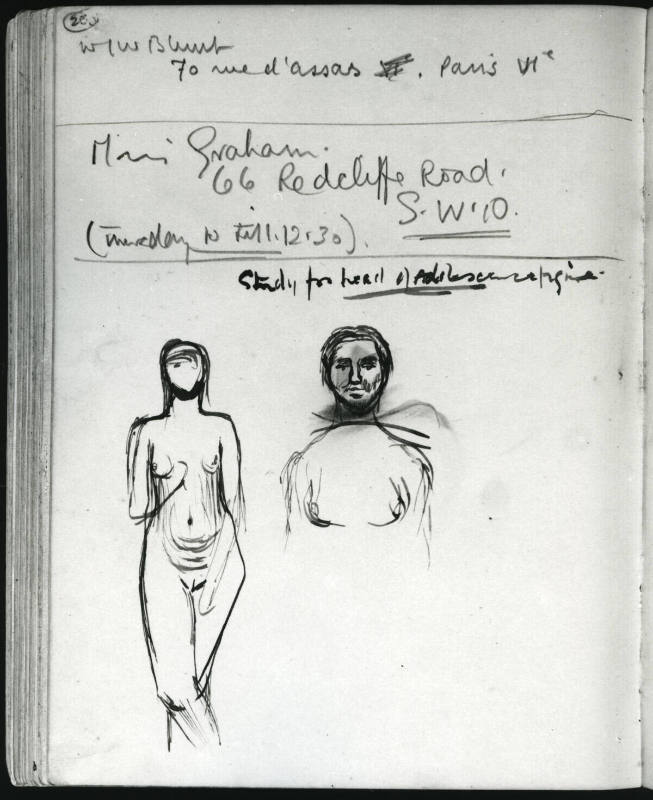 W J W Blunt
70 rue d'assas . Paris VIe
Graham.
66 Redcliffe Road.
S.W.10.
(Thursday to till 12.30).
Study for head of Adolescence